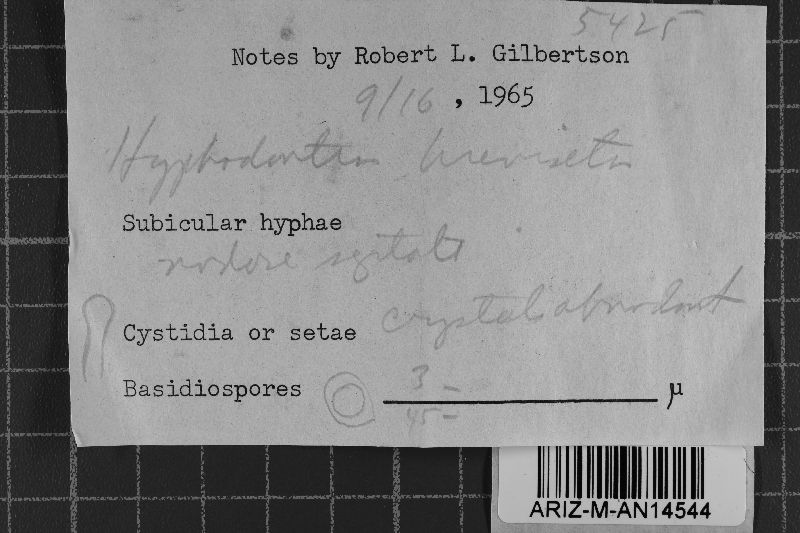 5425
Notes by Robert L. Gilbertson
9/16, 1965
Hyphodontia breviseta
Subicular hyphae
nodose septate
crystals abundant
Cystidia or setae
Basidiospores 3 - μ
45 -
ARIZ-M-AN14544